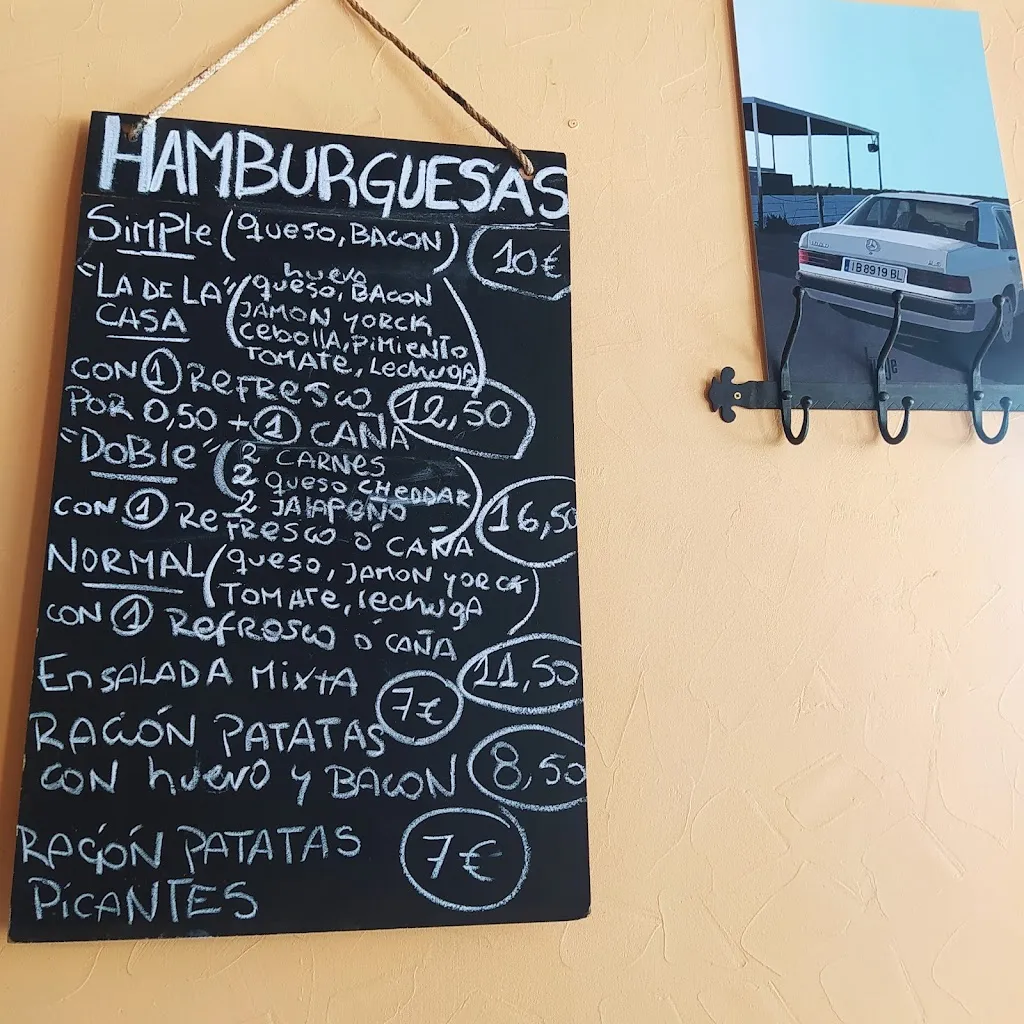 HAMBURGUESAS
SiMPle (queso, BACON) 10€
"LA DE LA" (huevo
queso, BACON
CASA JAMON YORCK
cebolla, PiMiento
TOMATE, Lechuga)
CON 1 Refresco 12,50
POR 0,50 + 1 CAÑA
"DOBle" (2 CARNES
2 queso CHeDDAR
2 JALAPEÑO)
CON 1 Re
fresco ó CAÑA 16,50
NORMAL (queso, JAMON YORCK
TOMATe, lechuga)
CON 1 Refresco ó CAÑA 11,50
EnSALADA MixTA 7€
RACiÓN PATATAS
CON huevo y BACON 8,50
RACiÓN PATATAS 7€
PiCANTES
IB 8919 BL